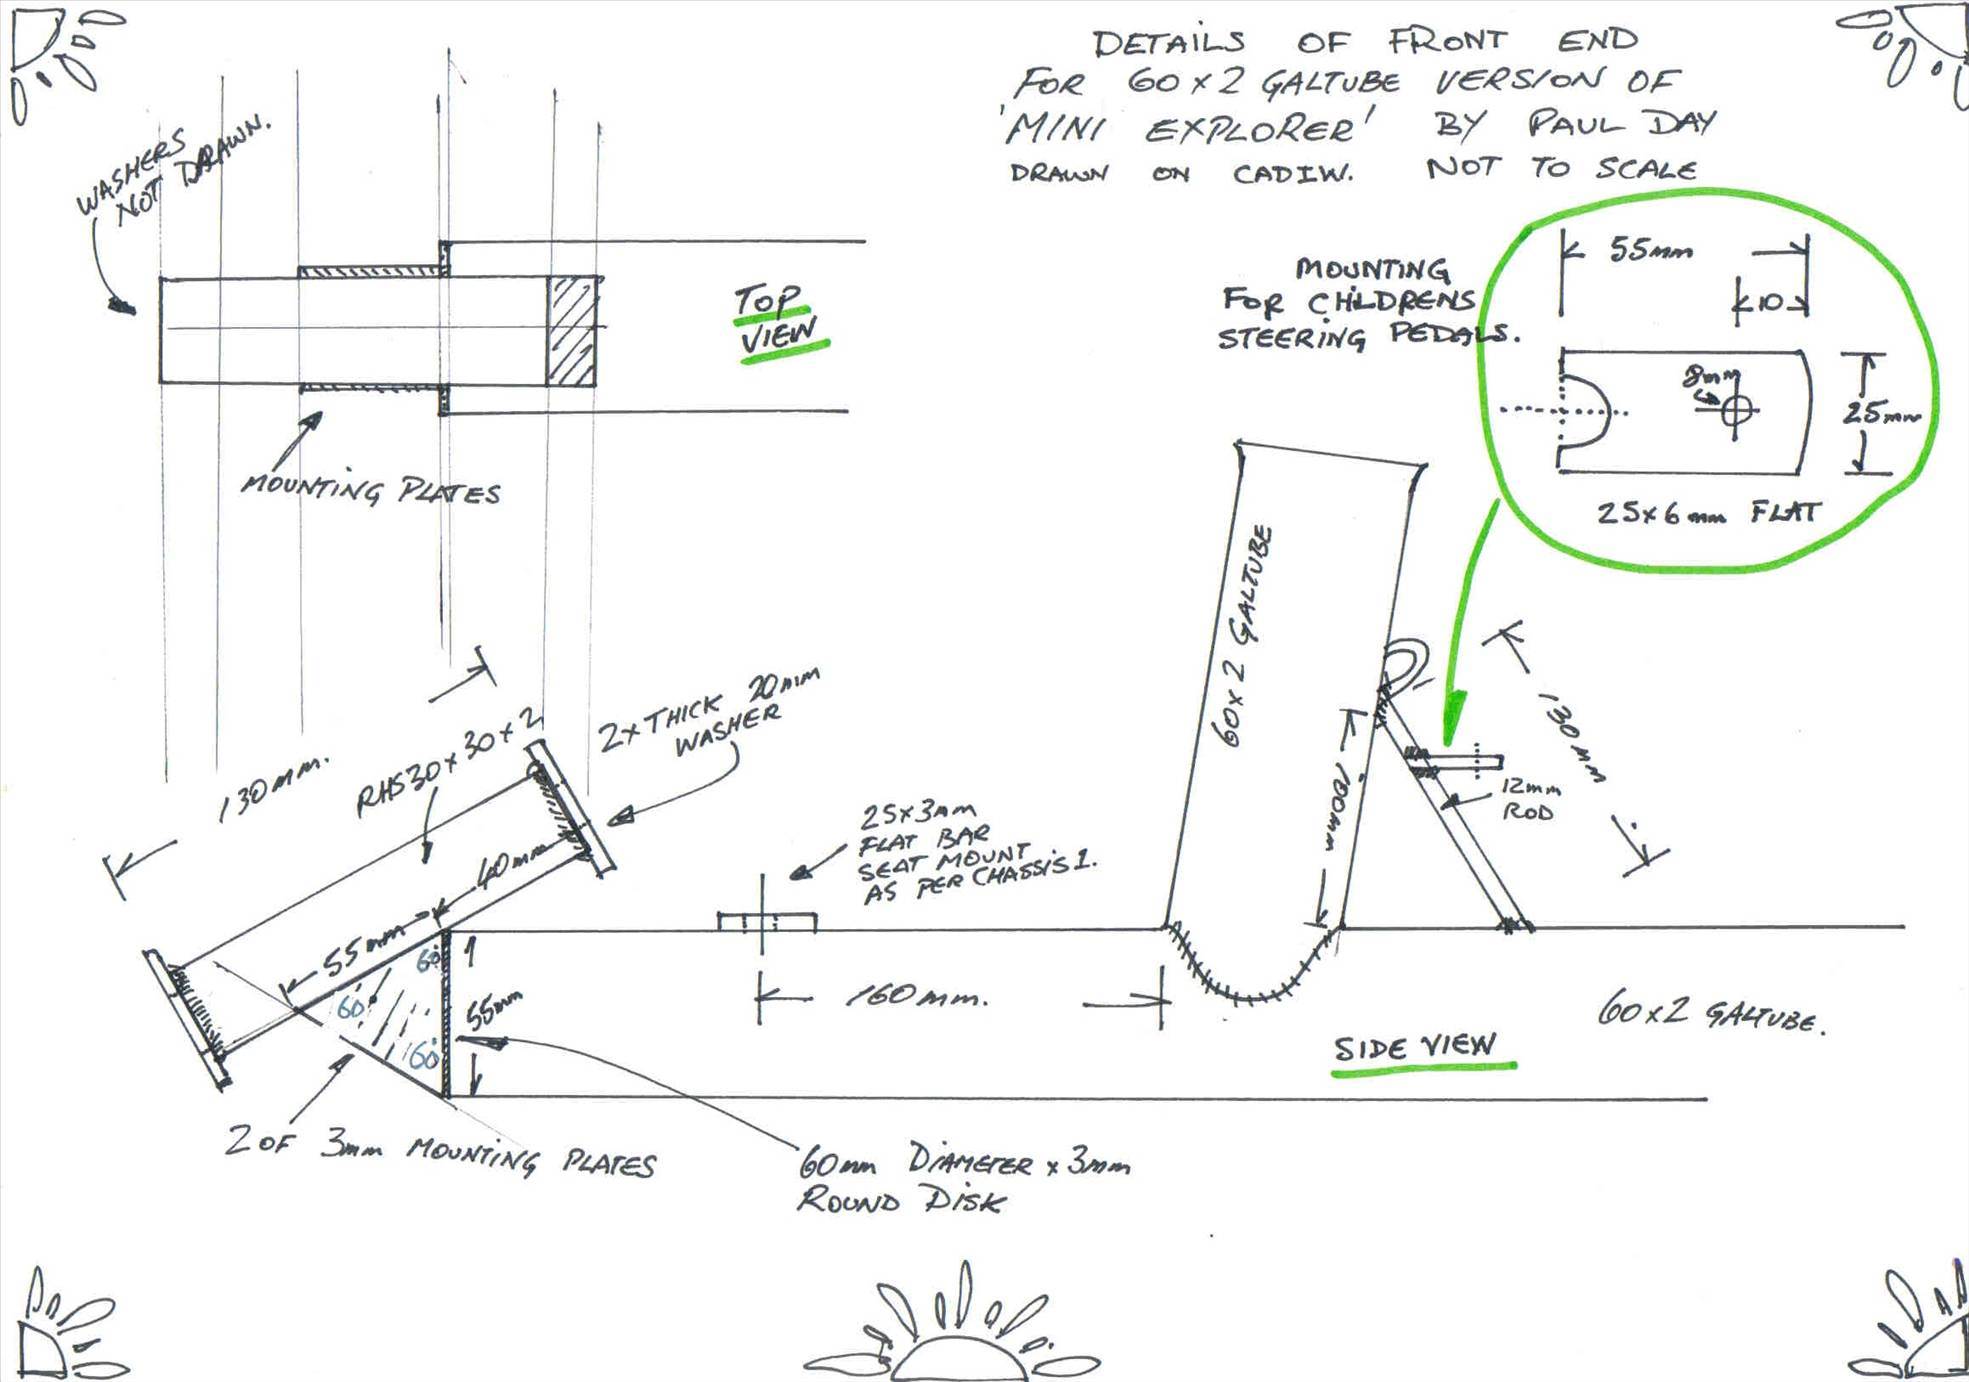 DETAILS OF FRONT END
FOR 60 x 2 GALTUBE VERSION OF
'MINI EXPLORER' BY PAUL DAY
DRAWN ON CADIW. NOT TO SCALE
WASHERS
NOT DRAWN.
TOP
VIEW
MOUNTING PLATES
MOUNTING
FOR CHILDRENS
STEERING PEDALS.
55mm
10
8mm
25mm
25x6mm FLAT
60x2 GALTUBE
100mm
130mm
12mm
ROD
130mm.
RHS30x30x2
2x THICK 20mm
WASHER
40mm
55mm
60°
60°
60°
55mm
25x3mm
FLAT BAR
SEAT MOUNT
AS PER CHASSIS 1.
160mm.
60x2 GALTUBE.
SIDE VIEW
2 OF 3mm MOUNTING PLATES
60mm DIAMETER x 3mm
ROUND DISK